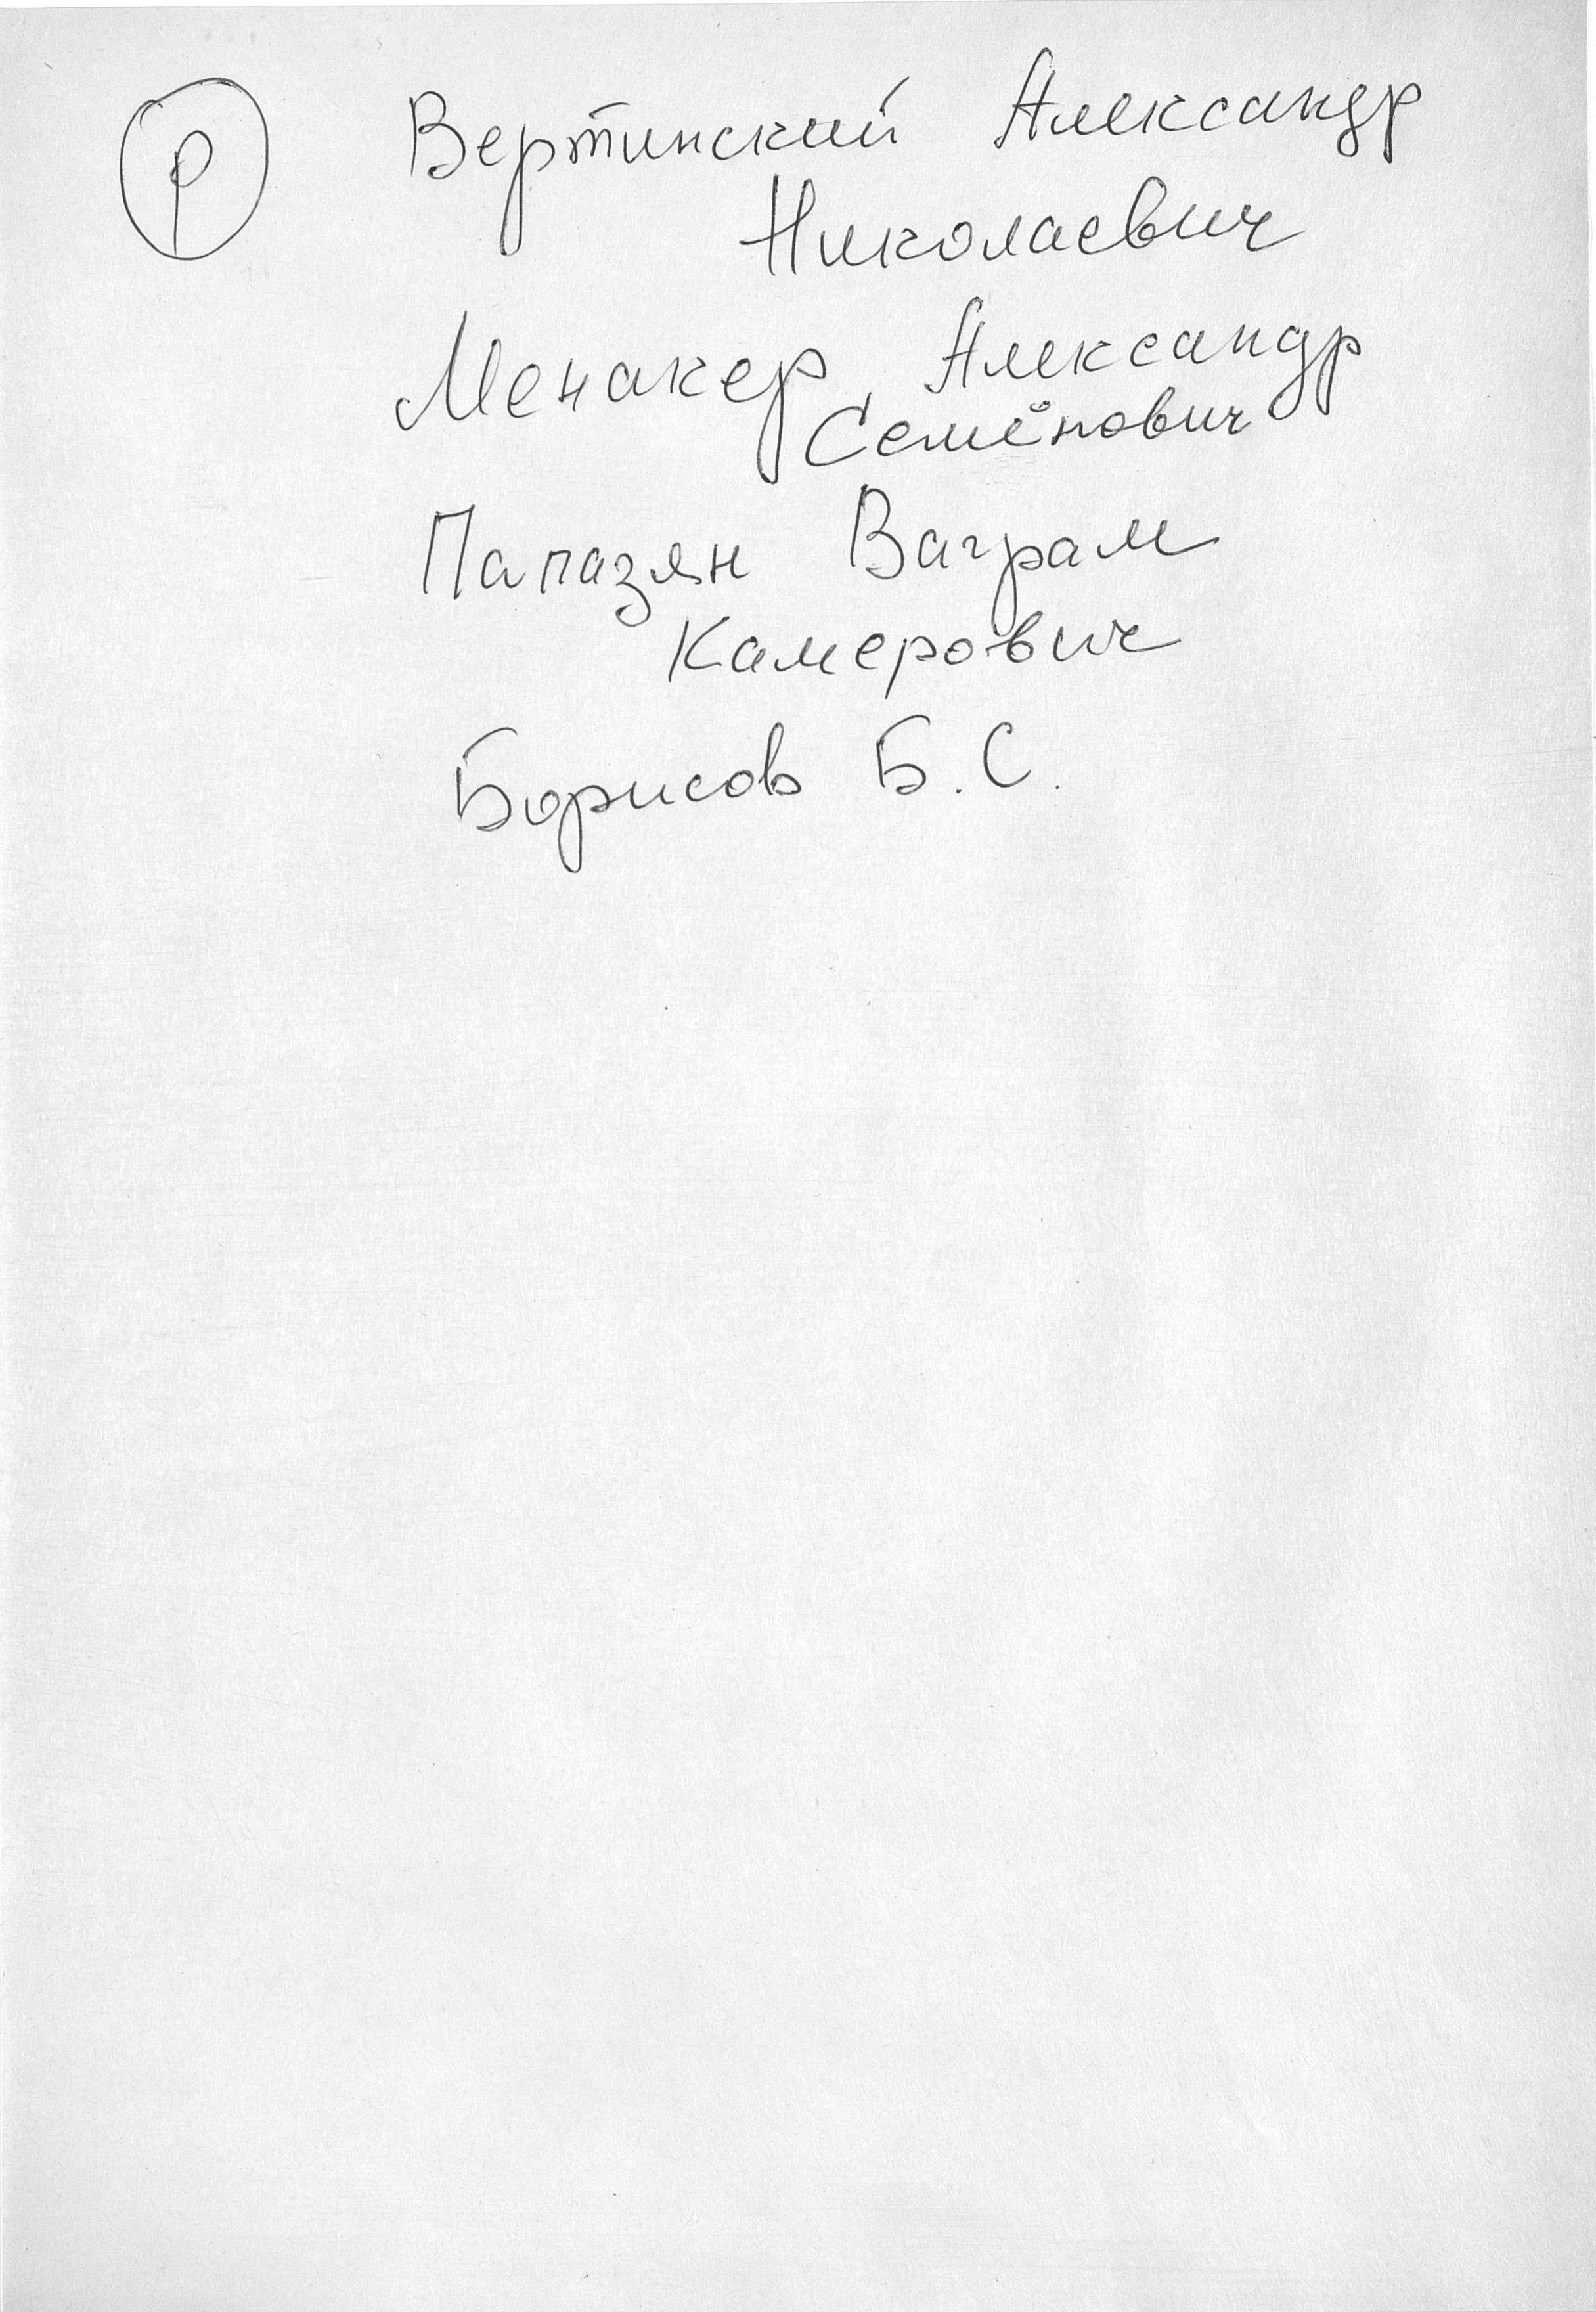 р Вертинский Александр
Николаевич
Менакер Александр
Семёнович
Папазян Ваграм
Камерович
Борисов Б.С.